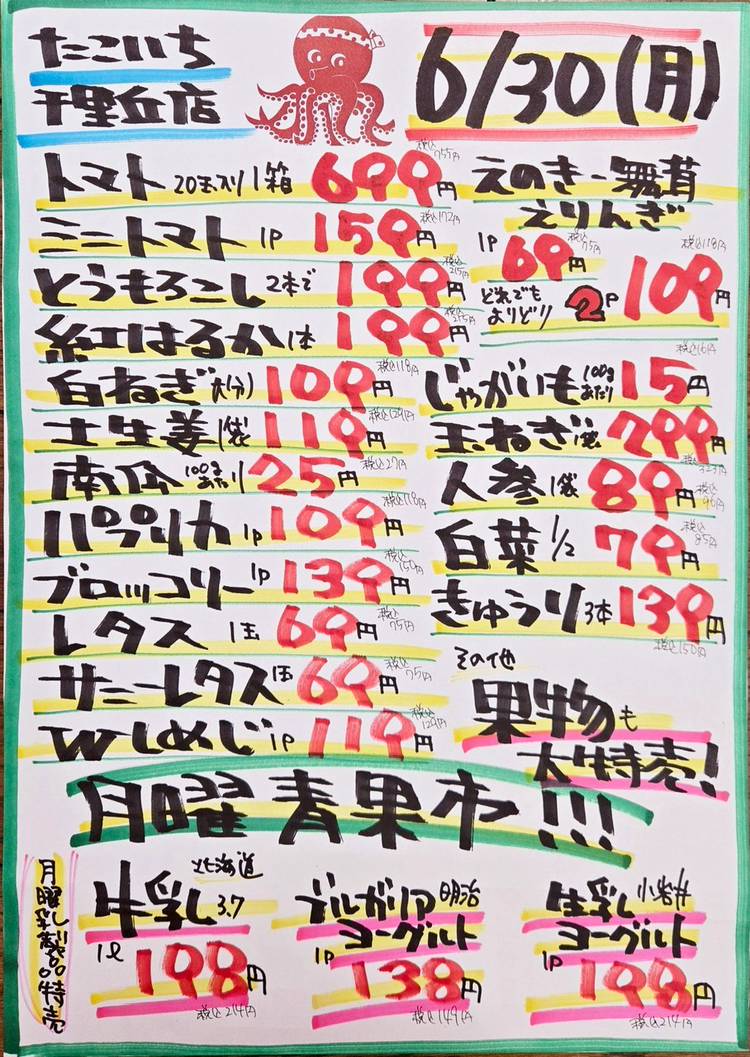 たこいち
千里丘店
6/30(月)
トマト 20玉入り1箱 699円
税込755円
ミニトマト 1P 159円
税込172円
とうもろこし 2本で 199円
税込215円
紅はるか 1本 199円
税込215円
白ねぎ(大分) 109円
税込118円
土生姜 1袋 119円
税込129円
南瓜 100gあたり 25円
税込27円
パプリカ 1P 109円
税込118円
ブロッコリー 1P 139円
税込150円
レタス 1玉 69円
税込75円
サニーレタス 1玉 69円
税込75円
Wしめじ 1P 119円
税込129円
えのき・舞茸
えりんぎ
1P 69円
税込75円
どれでも
よりどり 2P 109円
税込118円
じゃがいも 100gあたり 15円
税込16円
玉ねぎ 1袋 299円
税込323円
人参 1袋 89円
税込96円
白菜 1/2 79円
税込85円
きゅうり 3本 139円
税込150円
その他
果物も
大特売!
月曜青果市!!!
月曜乳製品特売
北海道
牛乳 3.7
1ℓ 198円
税込214円
ブルガリア 明治
ヨーグルト
1P 138円
税込149円
生乳 小岩井
ヨーグルト
1P 198円
税込214円